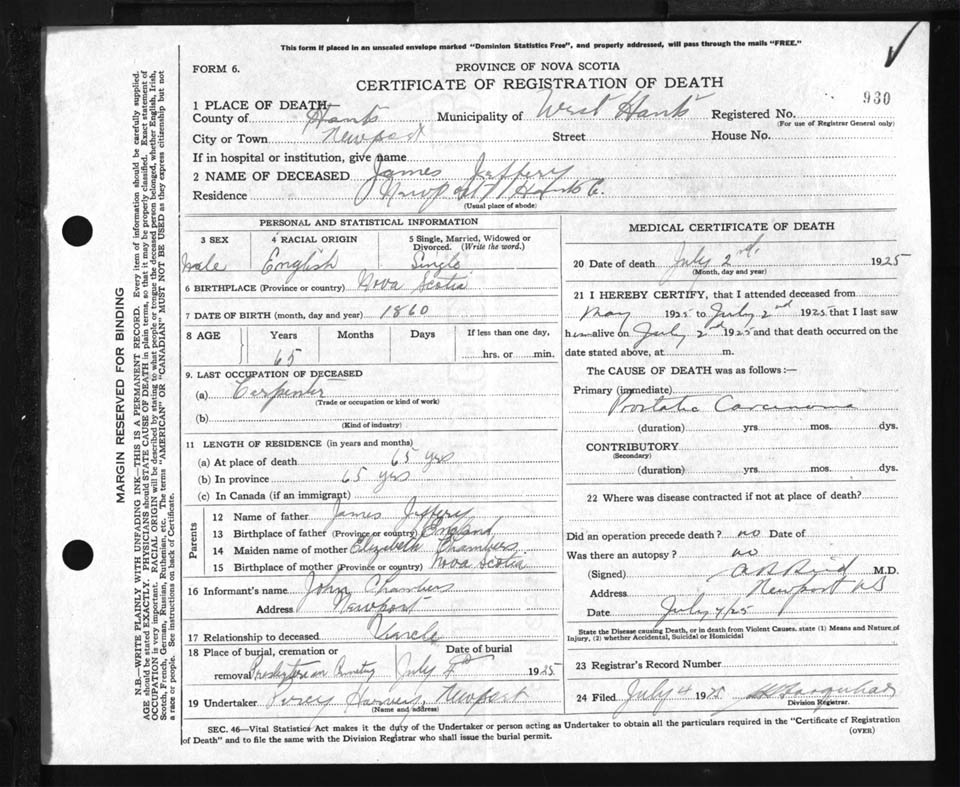 This form if placed in an unsealed envelope marked "Dominion Statistics Free", and properly addressed, will pass through the mails "FREE."
FORM 6.
PROVINCE OF NOVA SCOTIA
CERTIFICATE OF REGISTRATION OF DEATH
930
1 PLACE OF DEATH—
County of Hants Municipality of West Hants Registered No.
(For use of Registrar General only)
City or Town Newport Street House No.
If in hospital or institution, give name
2 NAME OF DECEASED James Jeffery
Residence Newport Hants C.
(Usual place of abode)
PERSONAL AND STATISTICAL INFORMATION
3 SEX 4 RACIAL ORIGIN 5 Single, Married, Widowed or Divorced. (Write the word.)
Male English Single
6 BIRTHPLACE (Province or country) Nova Scotia
7 DATE OF BIRTH (month, day and year) 1860
8 AGE Years Months Days If less than one day,
65 hrs. or min.
9. LAST OCCUPATION OF DECEASED
(a) Carpenter
(Trade or occupation or kind of work)
(b)
(Kind of industry)
11 LENGTH OF RESIDENCE (in years and months)
(a) At place of death 65 yrs
(b) In province 65 yrs
(c) In Canada (if an immigrant)
Parents
12 Name of father James Jeffery
13 Birthplace of father (Province or country) England
14 Maiden name of mother Elizabeth Chambers
15 Birthplace of mother (Province or country) Nova Scotia
16 Informant's name John Chambers
Address Newport
17 Relationship to deceased
18 Place of burial, cremation or Date of burial
removal Presbyterian July 1925
19 Undertaker Percy Harvey, Newport
(Name and address)
MEDICAL CERTIFICATE OF DEATH
20 Date of death July 2nd 1925
(Month, day and year)
21 I HEREBY CERTIFY, that I attended deceased from
May 1925 to July 2nd 1925 that I last saw
him alive on July 2nd 1925 and that death occurred on
date stated above, at m.
The CAUSE OF DEATH was as follows:—
Primary (immediate)
Prostatic Carcinoma
(duration) yrs. mos. dys.
CONTRIBUTORY
(Secondary)
(duration) yrs. mos. dys.
22 Where was disease contracted if not at place of death?
Did an operation precede death? no Date of
Was there an autopsy? no
(Signed) M.D.
Address Newport NS
Date July 4/25
State the Disease causing Death, or in death from Violent Causes, state (1) Means and Nature of
Injury, (2) whether Accidental, Suicidal or Homicidal
23 Registrar's Record Number
24 Filed July 4 1925
Division Registrar.
SEC. 46—Vital Statistics Act makes it the duty of the Undertaker or person acting as Undertaker to obtain all the particulars required in the "Certificate of Registration
of Death" and to file the same with the Division Registrar who shall issue the burial permit.
(OVER)
MARGIN RESERVED FOR BINDING
N.B—WRITE PLAINLY WITH UNFADING INK—THIS IS A PERMANENT RECORD. Every item of information should be carefully supplied.
AGE should be stated EXACTLY. PHYSICIANS should STATE CAUSE OF DEATH in plain terms, so that it may be properly classified. Exact statement of
OCCUPATION is very important. RACIAL ORIGIN will be described by stating to what people or tongue the deceased person belonged, whether English, Irish,
Scotch, French, German, Russian, Ruthenian, etc. The terms "AMERICAN" OR "CANADIAN" MUST NOT BE USED as they express citizenship but not
a race or people. See instructions on back of Certificate.